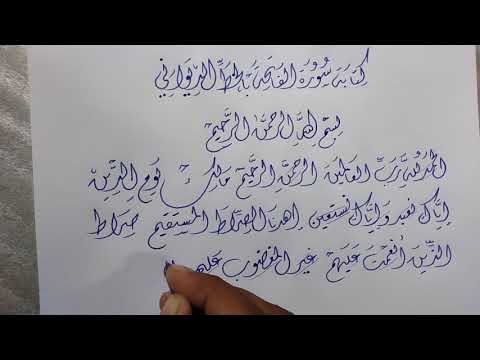 كِتَابَة سُورَة الفَاتِحَة بِالخَطِّ الدِّيوَانِي
بِسْمِ اللهِ الرَّحْمَنِ الرَّحِيمِ
الحَمْدُ للهِ رَبِّ العَالَمِينَ الرَّحْمَنِ الرَّحِيمِ مَالِكِ يَومِ الدِّينِ
إِيَّاكَ نَعْبُدُ وَإِيَّاكَ نَسْتَعِين اِهْدِنَا الصِّرَاطَ المُسْتَقِيمَ صِرَاطَ
الَّذِينَ أَنْعَمْتَ عَلَيْهِمْ غَيْرِ المَغْضُوبِ عَلَيْهِمْ